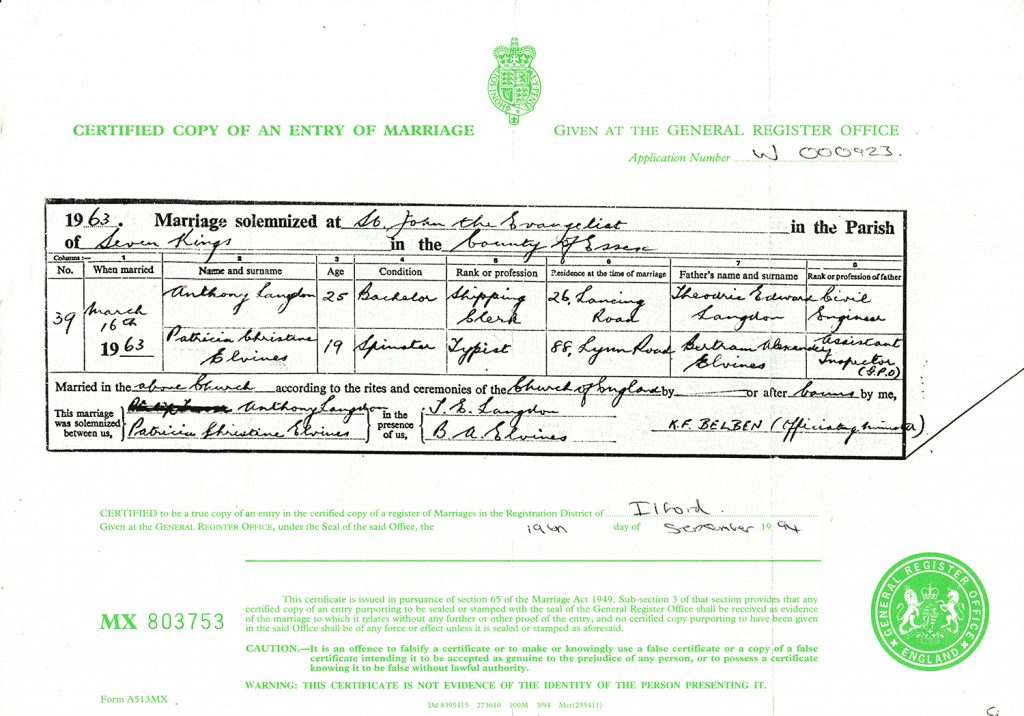 HONI·SOI Y·PENSE
CERTIFIED COPY OF AN ENTRY OF MARRIAGE
GIVEN AT THE GENERAL REGISTER OFFICE
Application Number W 000923.
1963. Marriage solemnized at St. John the Evangelist in the Parish
of Seven Kings in the County of Essex
Columns:— 1 2 3 4 5 6 7 8
No. When married Name and surname Age Condition Rank or profession Residence at the time of marriage Father's name and surname Rank or profession of father
39 March 16th 1963
Anthony Langdon 25 Bachelor Shipping Clerk 26, Lancing Road Theodric Edward Langdon Civil Engineer
Patricia Christine Elvines 19 Spinster Typist 88, Lynn Road Bertram Alexander Elvines Assistant Inspector (G.P.O)
Married in the above Church according to the rites and ceremonies of the Church of England by or after banns by me,
This marriage was solemnized between us, Anthony Langdon Patricia Christine Elvines in the presence of us, T. E. Langdon B. A. Elvines K.F. BELBEN (Officiating minister)
CERTIFIED to be a true copy of an entry in the certified copy of a register of Marriages in the Registration District of Ilford.
Given at the GENERAL REGISTER OFFICE, under the Seal of the said Office, the 19th day of September 1994
This certificate is issued in pursuance of section 65 of the Marriage Act 1949. Sub-section 3 of that section provides that any
certified copy of an entry purporting to be sealed or stamped with the seal of the General Register Office shall be received as evidence
of the marriage to which it relates without any further or other proof of the entry, and no certified copy purporting to have been given
in the said Office shall be of any force or effect unless it is sealed or stamped as aforesaid.
MX 803753
CAUTION.—It is an offence to falsify a certificate or to make or knowingly use a false certificate or a copy of a false
certificate intending it to be accepted as genuine to the prejudice of any person, or to possess a certificate
knowing it to be false without lawful authority.
WARNING: THIS CERTIFICATE IS NOT EVIDENCE OF THE IDENTITY OF THE PERSON PRESENTING IT.
GENERAL REGISTER OFFICE
ENGLAND
Form A513MX
Dd 8395415 273610 100M 3/94 Mcr(235411)